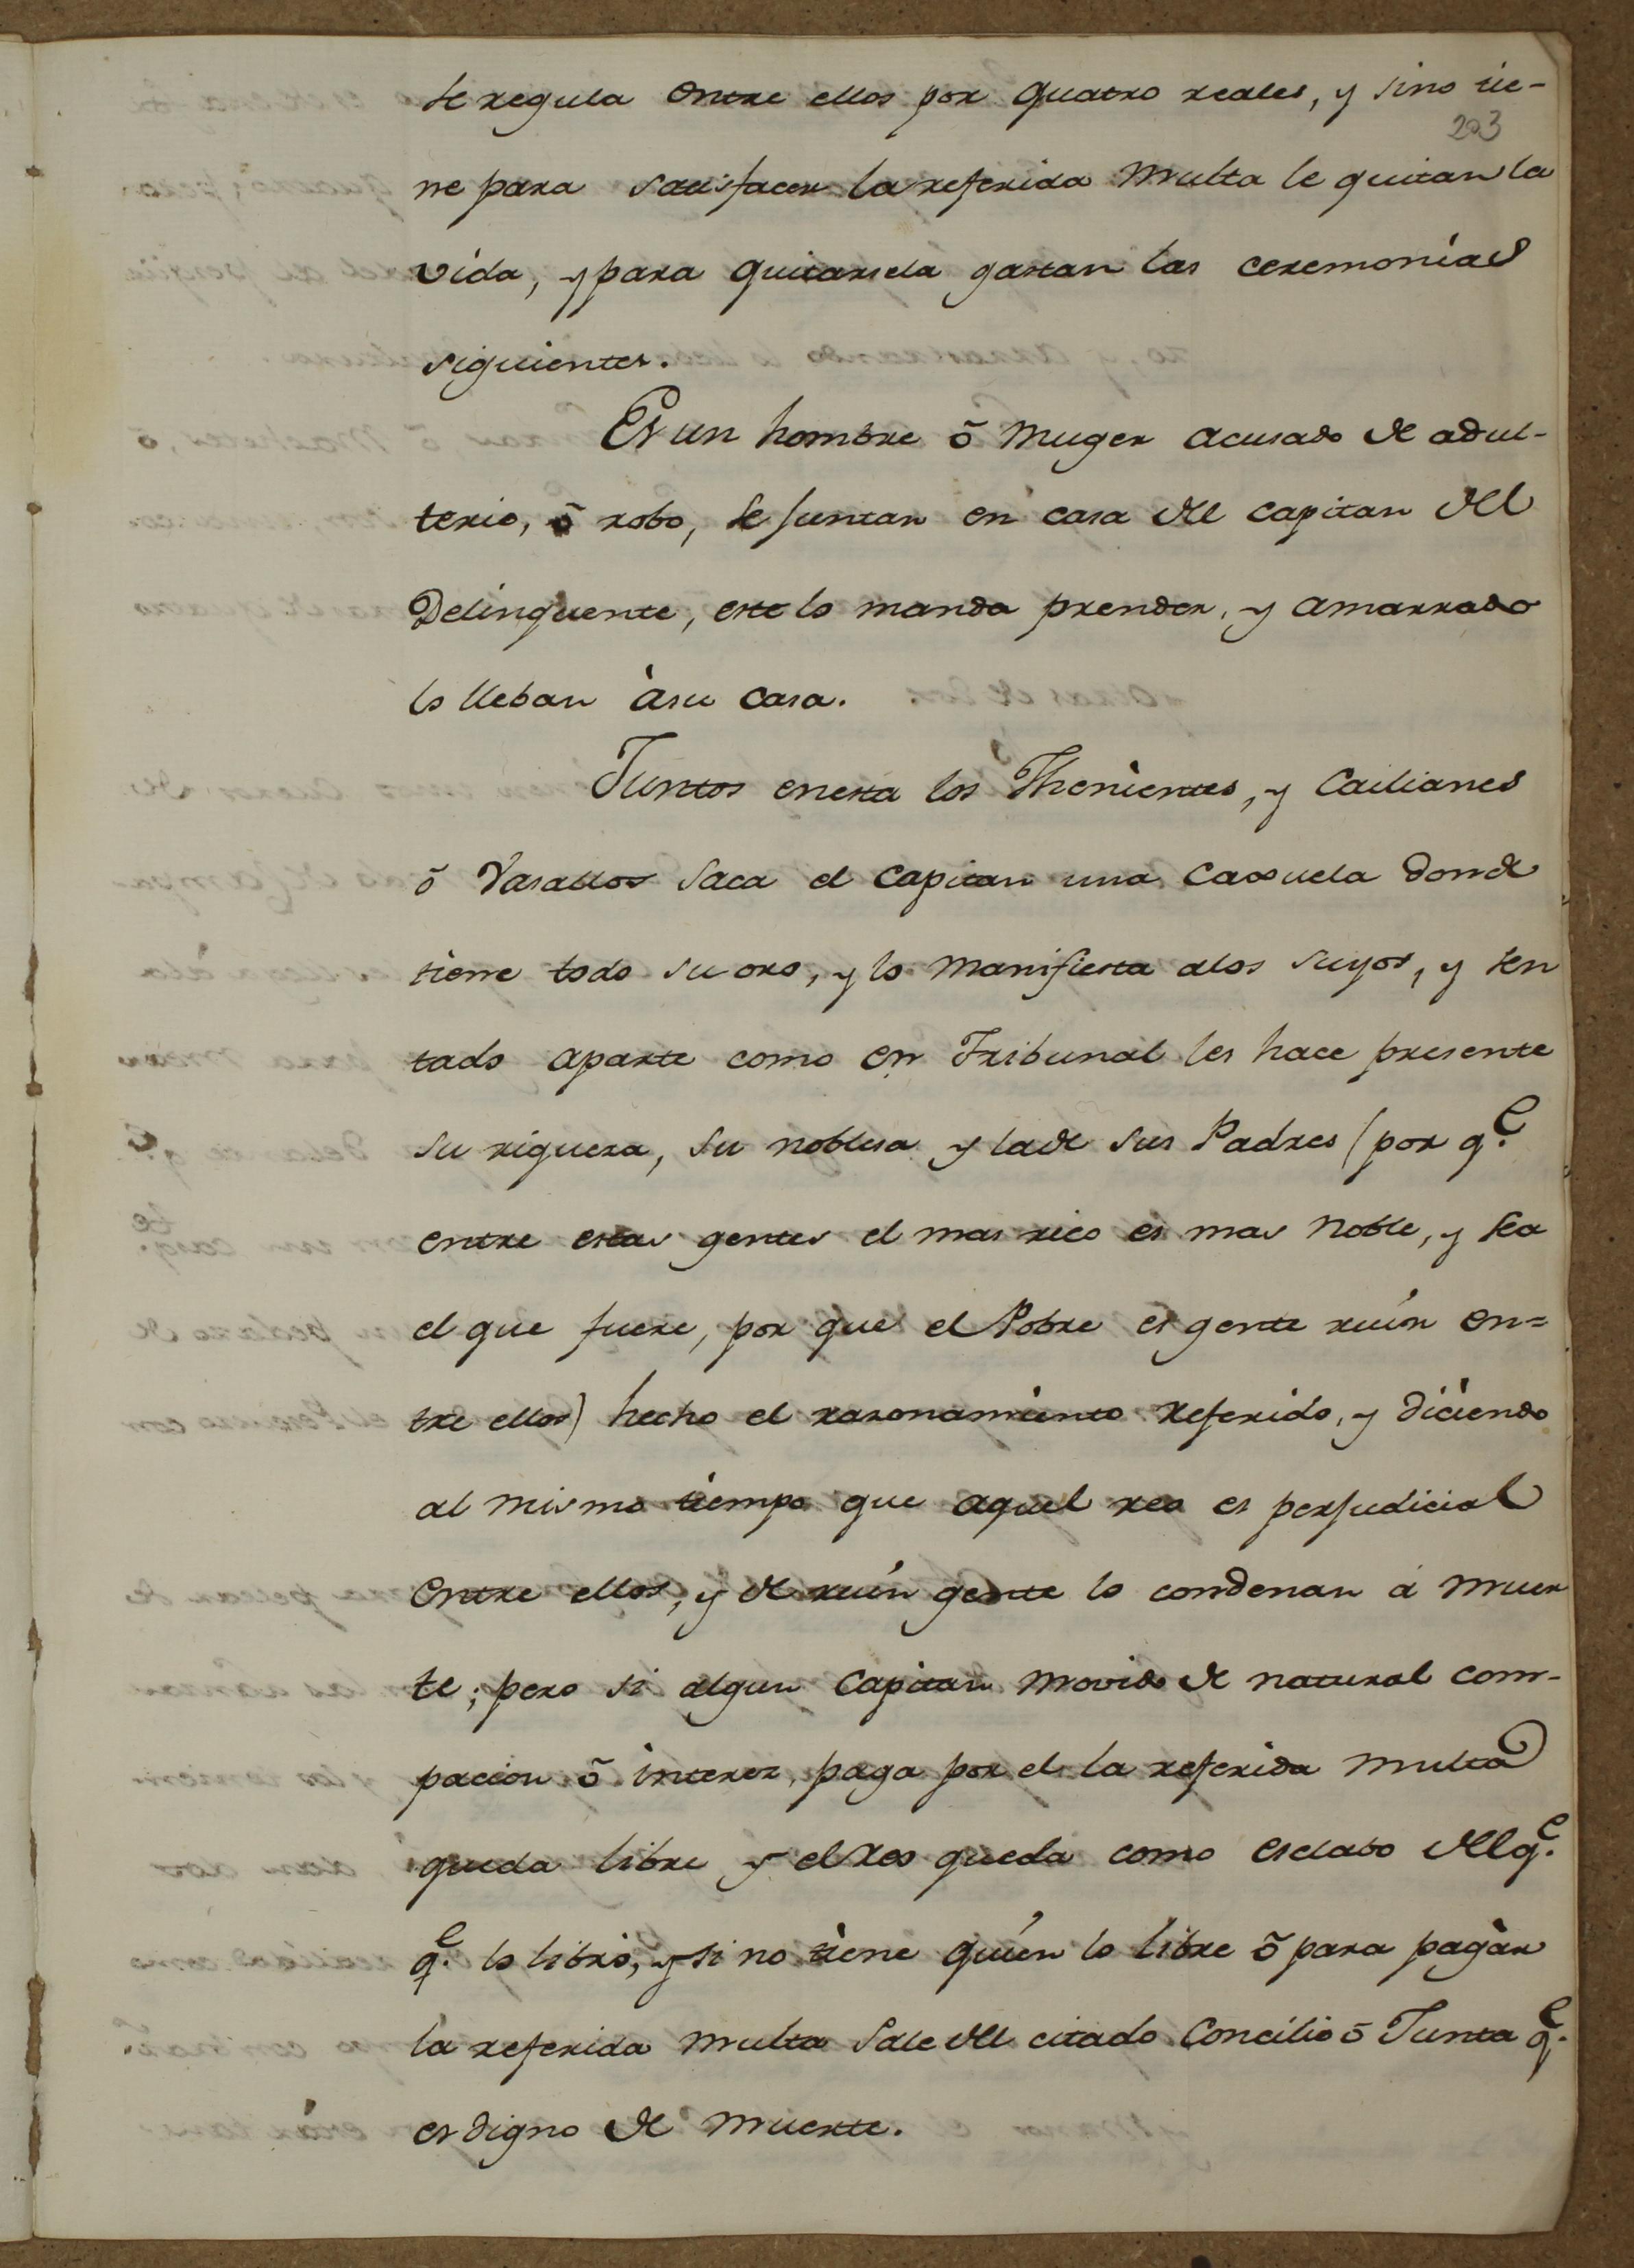 se regula entre ellos por quatro reales, y sino tie-
203
ne para satisfacer la referida multa le quitan la
vida, y para quitarsela gastan las ceremonias
siguientes.
Es un hombre ō muger acusado de adul-
terio, ō robo, se juntan en casa del capitan del
Delinquente, este lo manda prender, y amarrado
lo lleban àsu casa.
Juntos enesta los Thenientes, y Cailianes
ō Vasallos saca el capitan una casuela donde
tiene todo su oro, y lo manifiesta alos suyos, y sen
tado aparte como en Tribunal les hace presente
su riquera, su noblesa y lade sus Padres (por q.e
entre estas gentes el mas rico es mas noble, y sea
el que fuere, por que el Pobre es gente ruin en=
tre ellos) hecho el rasonamiento referido, y diciendo
al mismo tiempo que aquel reo es perjudicial
entre ellos, y de ruin gente lo condenan á muer
te; pero si algun Capitan movido de natural com-
pacion ō interez, paga por el la referida multa
queda libre y el Reo queda como esclabo del q.e
q.e lo libró, y si no tiene quien lo libre ō para pagàr
la referida multa sale del citado Concilio ō Junta q.e
es digno de muerte.